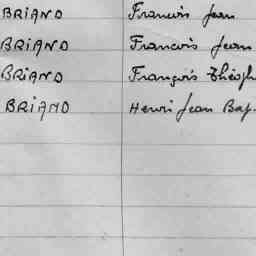 BRIAND Francois Jean
BRIAND Francois Jean
BRIAND François Théoph
BRIAND Henri Jean Bap.